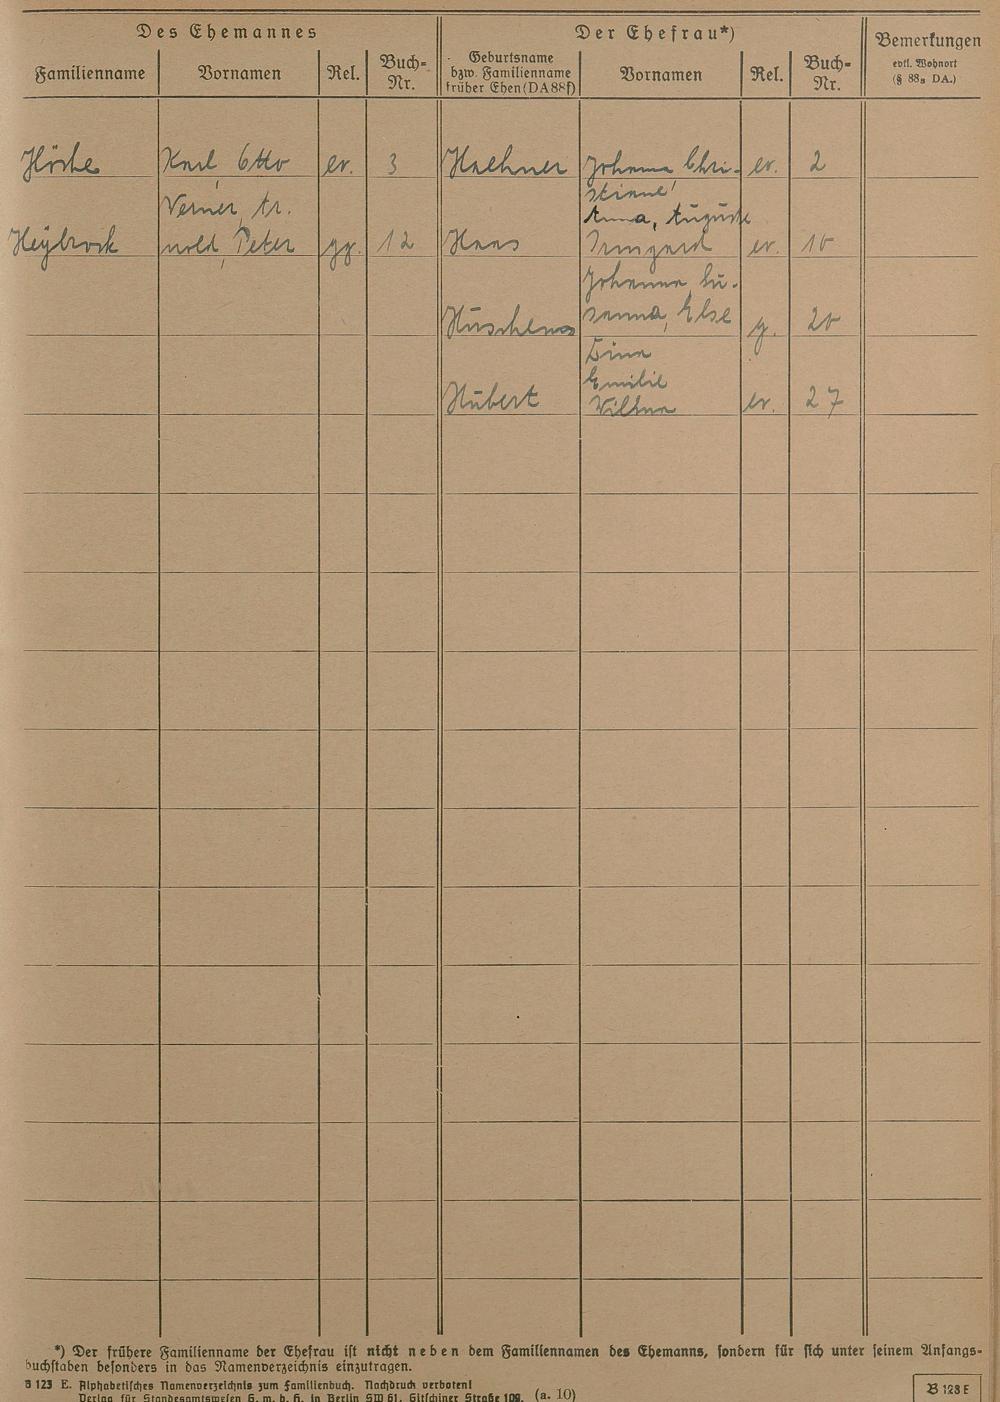 Des Ehemannes
Der Ehefrau*)
Bemerkungen
evtl. Wohnort
(§ 88a DA.)
Familienname
Vornamen
Rel.
Buch-
Nr.
Geburtsname
bzw. Familienname
früher Ehen (DA 88f)
Vornamen
Rel.
Buch-
Nr.
Karl, Otto ev. 3 Haehner Johanna, Chri- ev. 2
stiane
Werner, Ar-
Anna, Auguste
Heybrock nold, Peter gg. 12 Haas Irmgard ev. 10
Johanna, Su-
sanna, Else g. 20
Lina
Emilie
Hubert ev. 27
*) Der frühere Familienname der Ehefrau ist nicht neben dem Familiennamen des Ehemanns, sondern für sich unter seinem Anfangs-
buchstaben besonders in das Namenverzeichnis einzutragen.
B 123 E. Alphabetisches Namenverzeichnis zum Familienbuch. Nachdruck verboten!
Verlag für Standesamtswesen G. m. b. H. in Berlin SW 61, Gitschiner Straße 109. (a. 10)
B 123 E